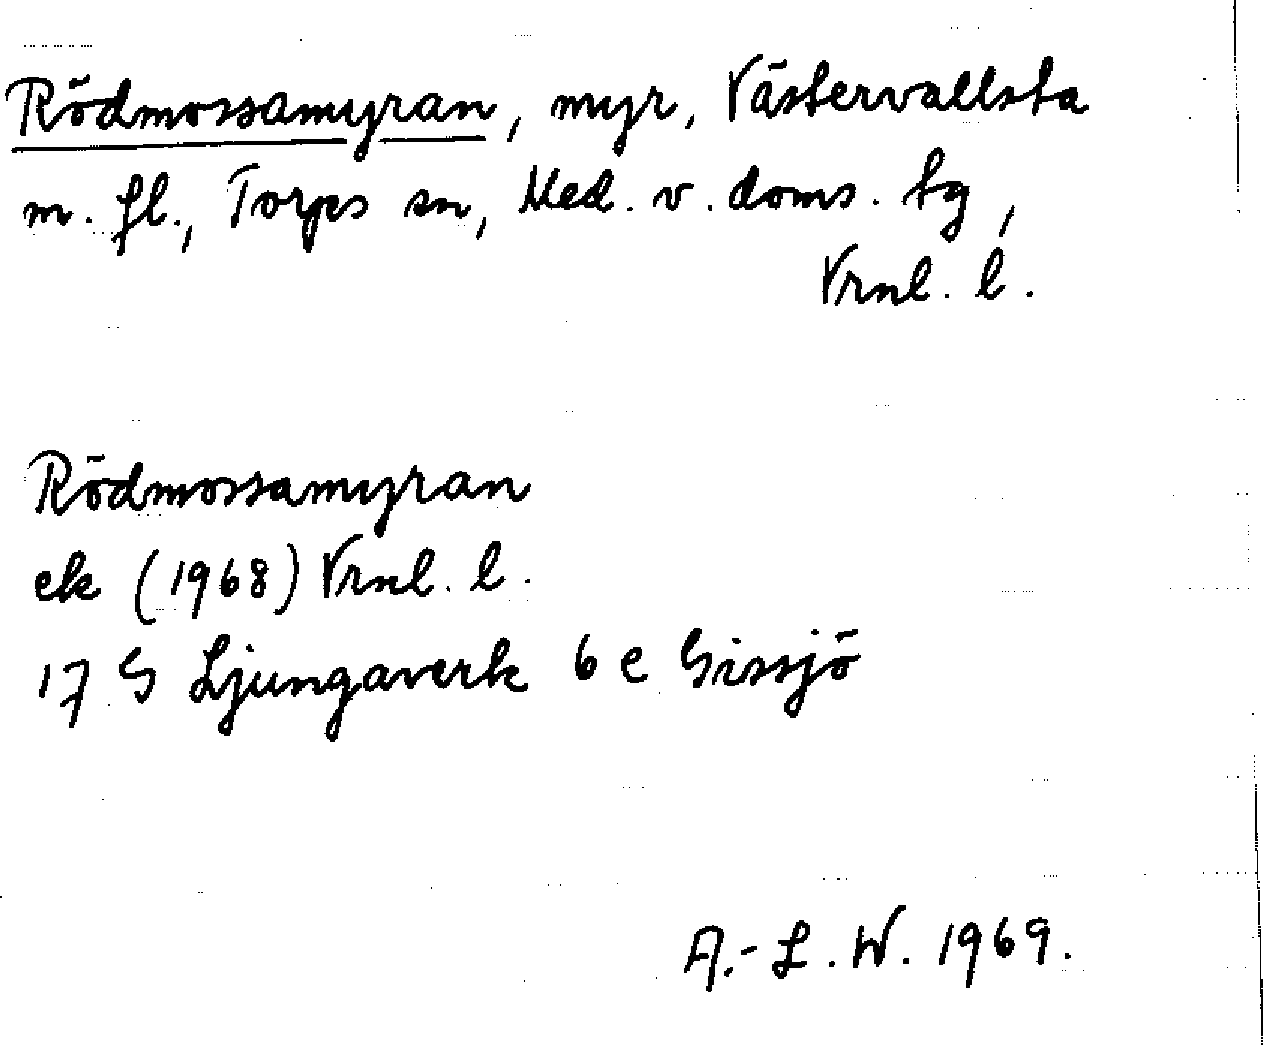 Rödmossamyran, myr, Västervallsta
m. fl., Torps sn, Med. v. doms. tg,
Vrnl. l.
Rödmossamyran
ek (1968) Vrnl. l.
17 G Ljungaverk 6 e Gissjö
A.-L. W. 1969.